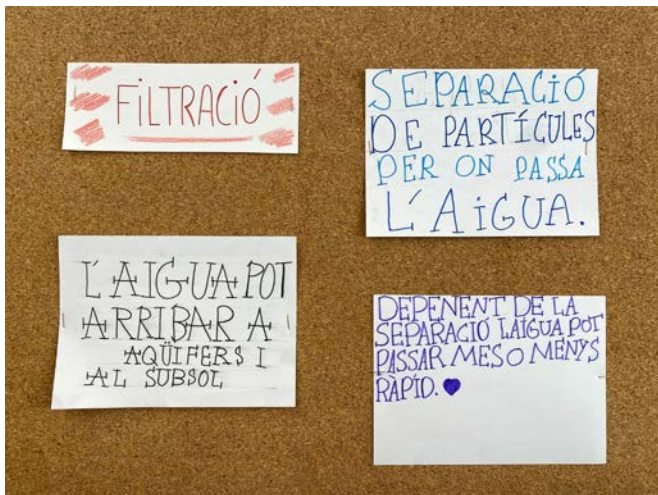 FiLTRACIÓ
SEPARACiÓ
DE PARTÍCULES
PER ON PASSA
L'AiGUA.
L'AIGUA POT
ARRIBAR A
AQÜIFERS I
AL SUBSOL
DEPENENT DE LA
SEPARACIÓ L'AIGUA POT
PASSAR MES O MENYS
RÀPID.